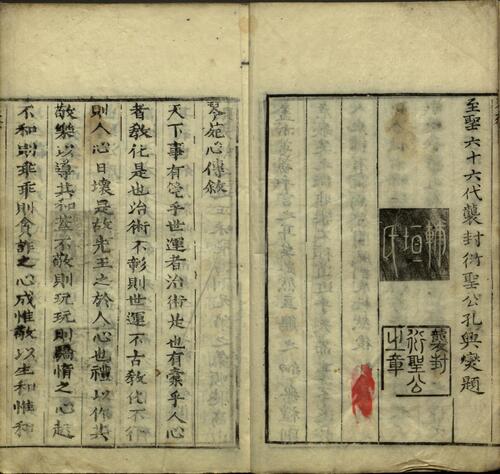 至聖六十六代襲封衍聖公孔興燮題
輔垣氏
襲封
衍聖公
之章
琴苑心傳敘
天下事有關乎世運者治術是也有繫乎人心
者敎化是也治術不彰則世運不古敎化不行
則人心日壞是故先王之於人心也禮以作其
敬樂以導其和葢不敬則玩玩則驕惰之心起
不和則乖乖則貪詐之心成惟敬以生和惟和